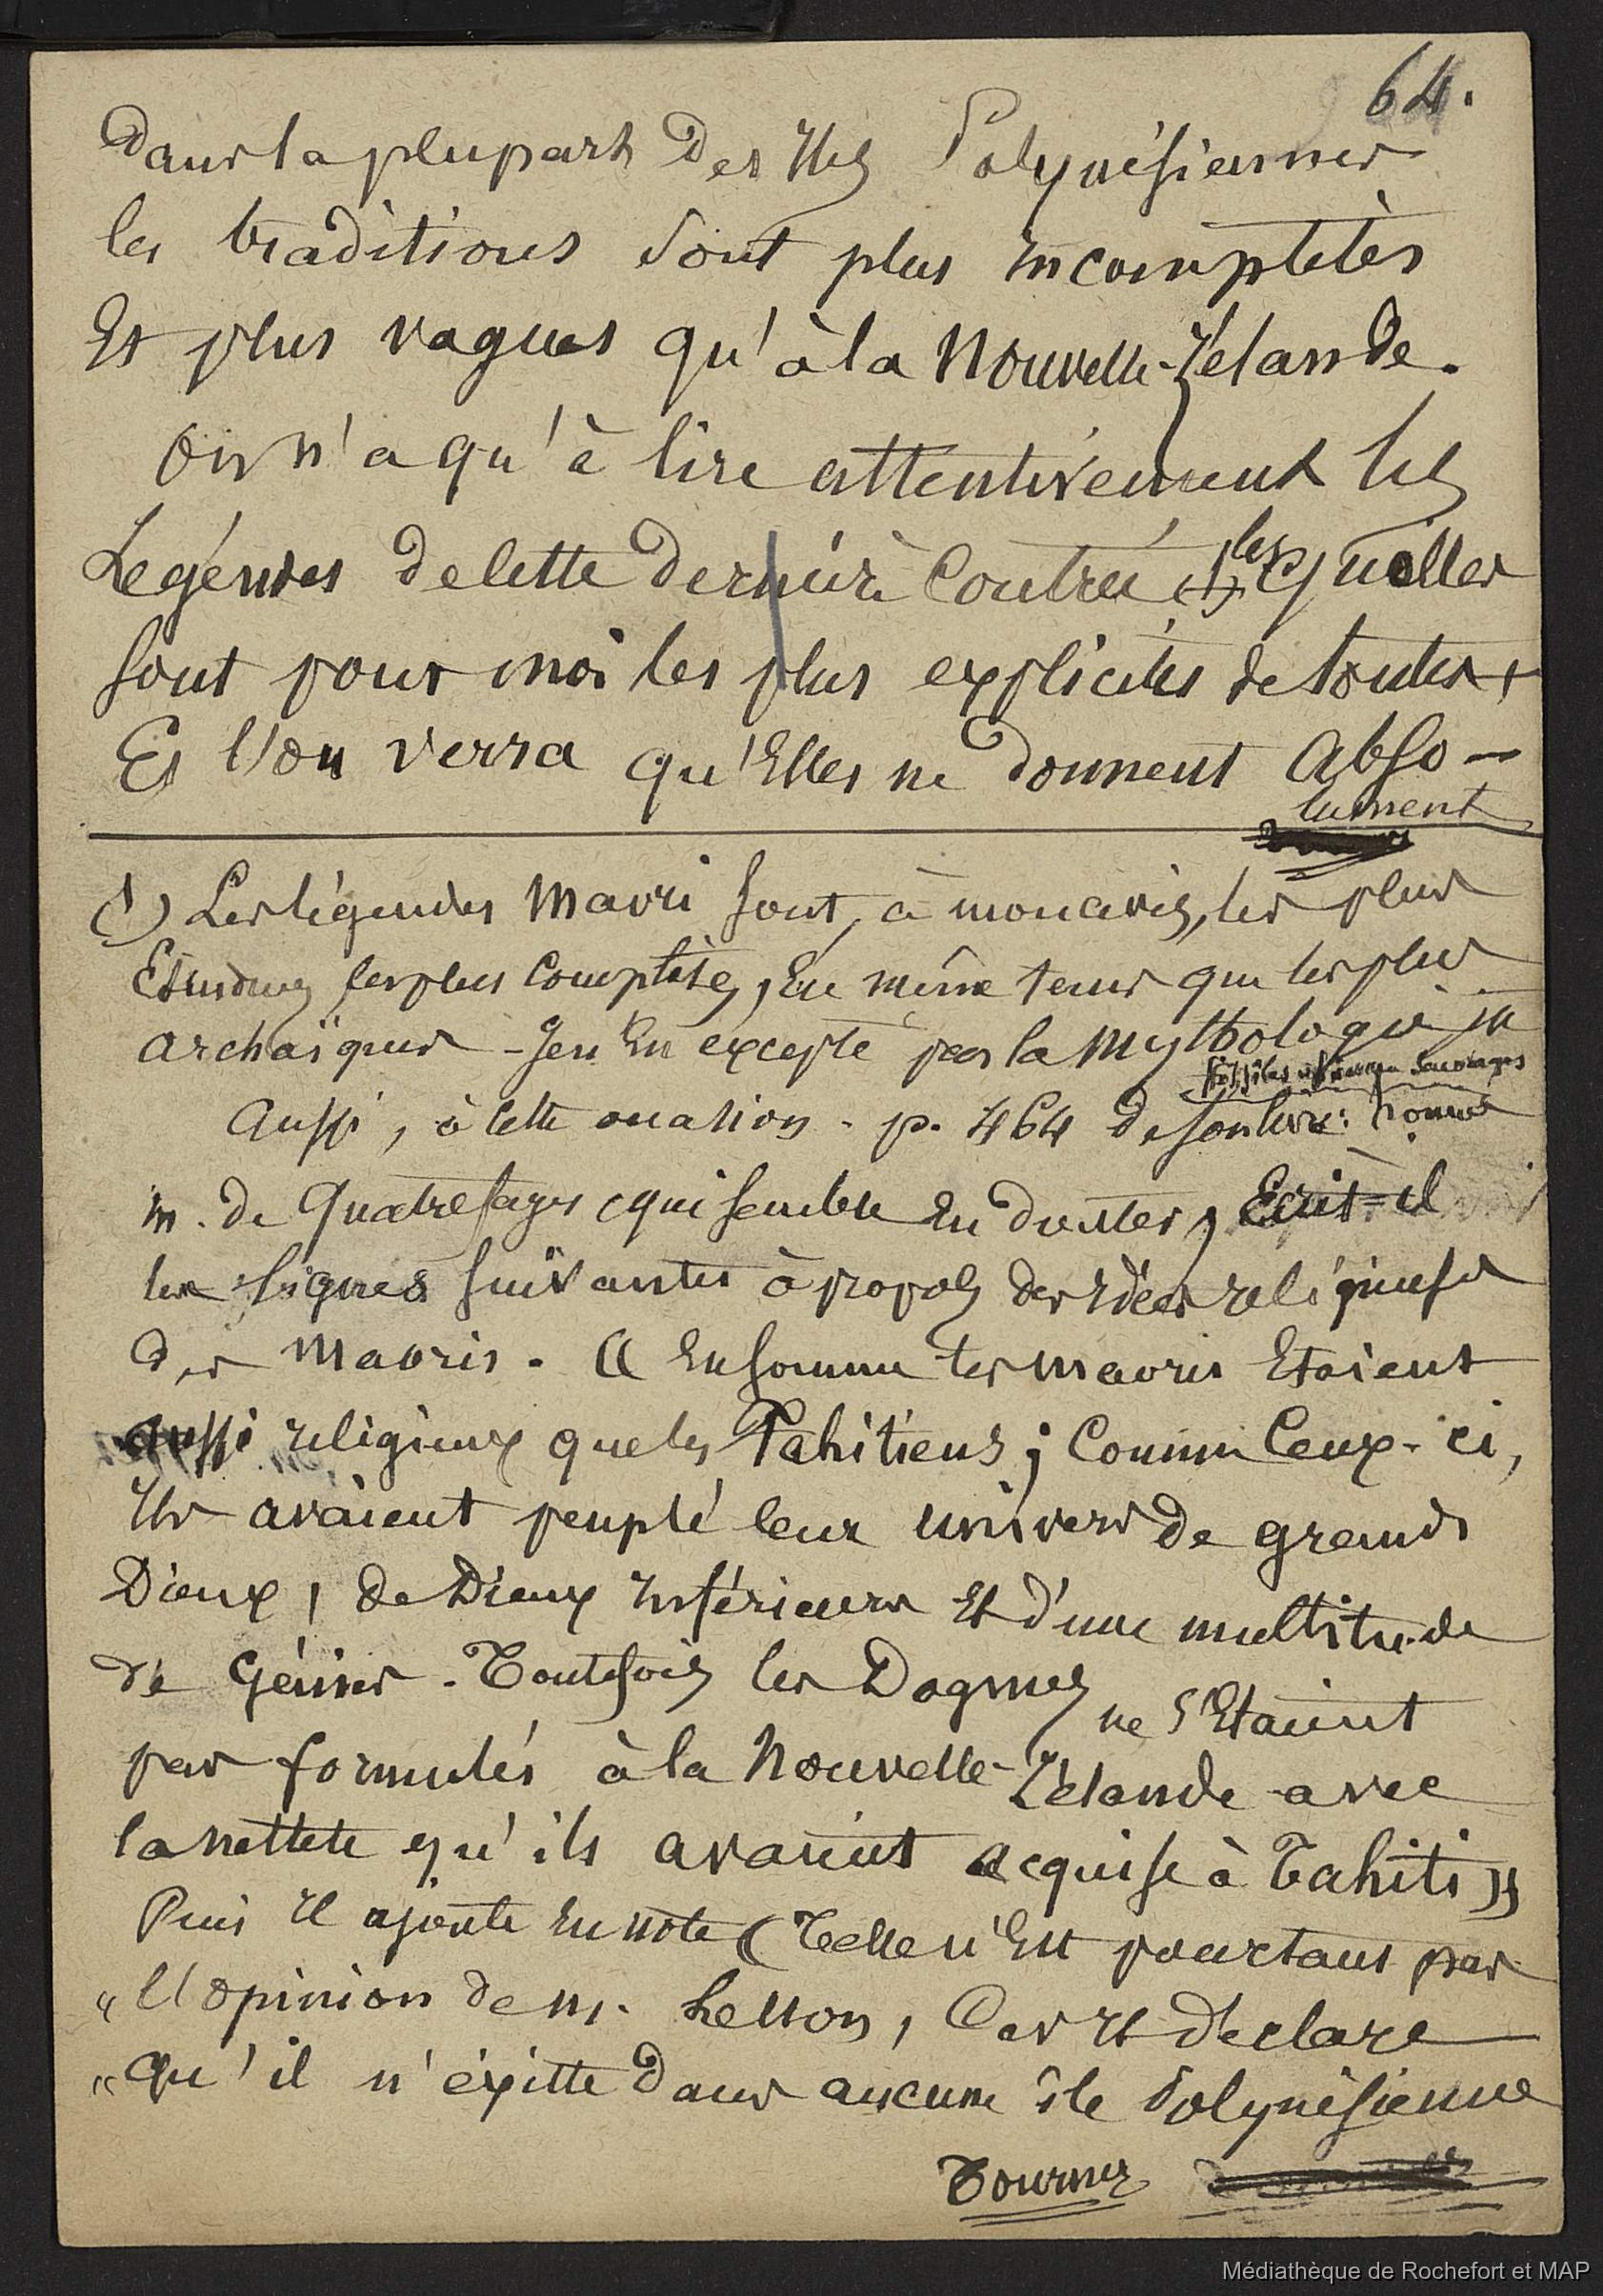 64.
Dans la plupart des Iles Polynésiennes
les traditions sont plus incomplètes
Et plus vagues qu'à la Nouvelle-Zélande.
On n'a qu'à lire attentivement les
Légendes de cette dernière Contrée (1) lesquelles
sont pour moi les plus explicites de toutes,
Et l'on verra qu'Elles ne donnent abso-
lument
(1) Les légendes Maori sont, à mon avis, les plus
Etendues, les plus Complètes, En même tems que les plus
archaïques - J'en En excepte pas la Mythologie
fossiles et hommes sauvages
aussi, à cette occasion - p. 464 de son livre: hommes
M. de Quatrefages qui semble En douter, Ecrit-il
les lignes suivantes à propos des idées religieuses
des Maoris. « En somme les Maoris Etaient
aussi religieux que les Tahitiens; Comme Ceux-ci,
Ils avaient peuplé leur univers de grands
Dieux, de Dieux Inférieurs Et d'une multitude
de Génies - Toutefois les Dogmes ne s'Etaient
pas formulés à la Nouvelle-Zélande avec
la netteté qu'ils avaient acquise à Tahiti »
Puis Il ajoute En note (Telle n'Est pourtant pas
"l'opinion de M. Lesson, Car Il déclare
"qu'il n'existe dans aucune île Polynésienne
Tournez
Médiathèque de Rochefort et MAP